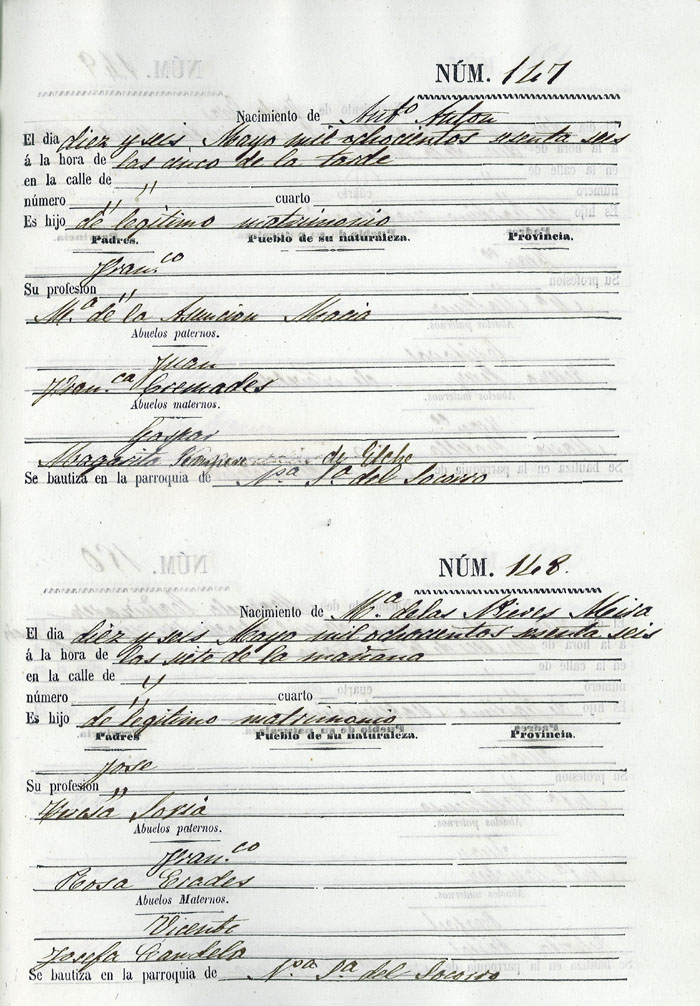 NÚM. 147
Nacimiento de Antº Anton
El dia diez y seis Mayo mil ochocientos senta seis
á la hora de las cinco de la tarde
en la calle de "
número " cuarto
Es hijo de legitimo matrimonio
Padres. Pueblo de su naturaleza. Provincia.
Fran.co
Su profesión "
M.a de la Asuncion Macia
Abuelos paternos.
Juan
Fran.ca Cremades
Abuelos maternos.
Gaspar
Margarita Sempere de Elche
Se bautiza en la parroquia de N.ª S.ª del Socorro
NÚM. 148.
Nacimiento de M.a de las Nieves Mira
El dia diez y seis Mayo mil ochocientos senta seis
á la hora de las siete de la mañana
en la calle de "
número " cuarto
Es hijo de legitimo matrimonio
Padres Pueblo de su naturaleza. Provincia.
Jose
Su profesión "
Teresa Soria
Abuelos paternos.
Fran.co
Rosa Erades
Abuelos Maternos.
Vicente
Josefa Candela
Se bautiza en la parroquia de N.ª S.ª del Socorro